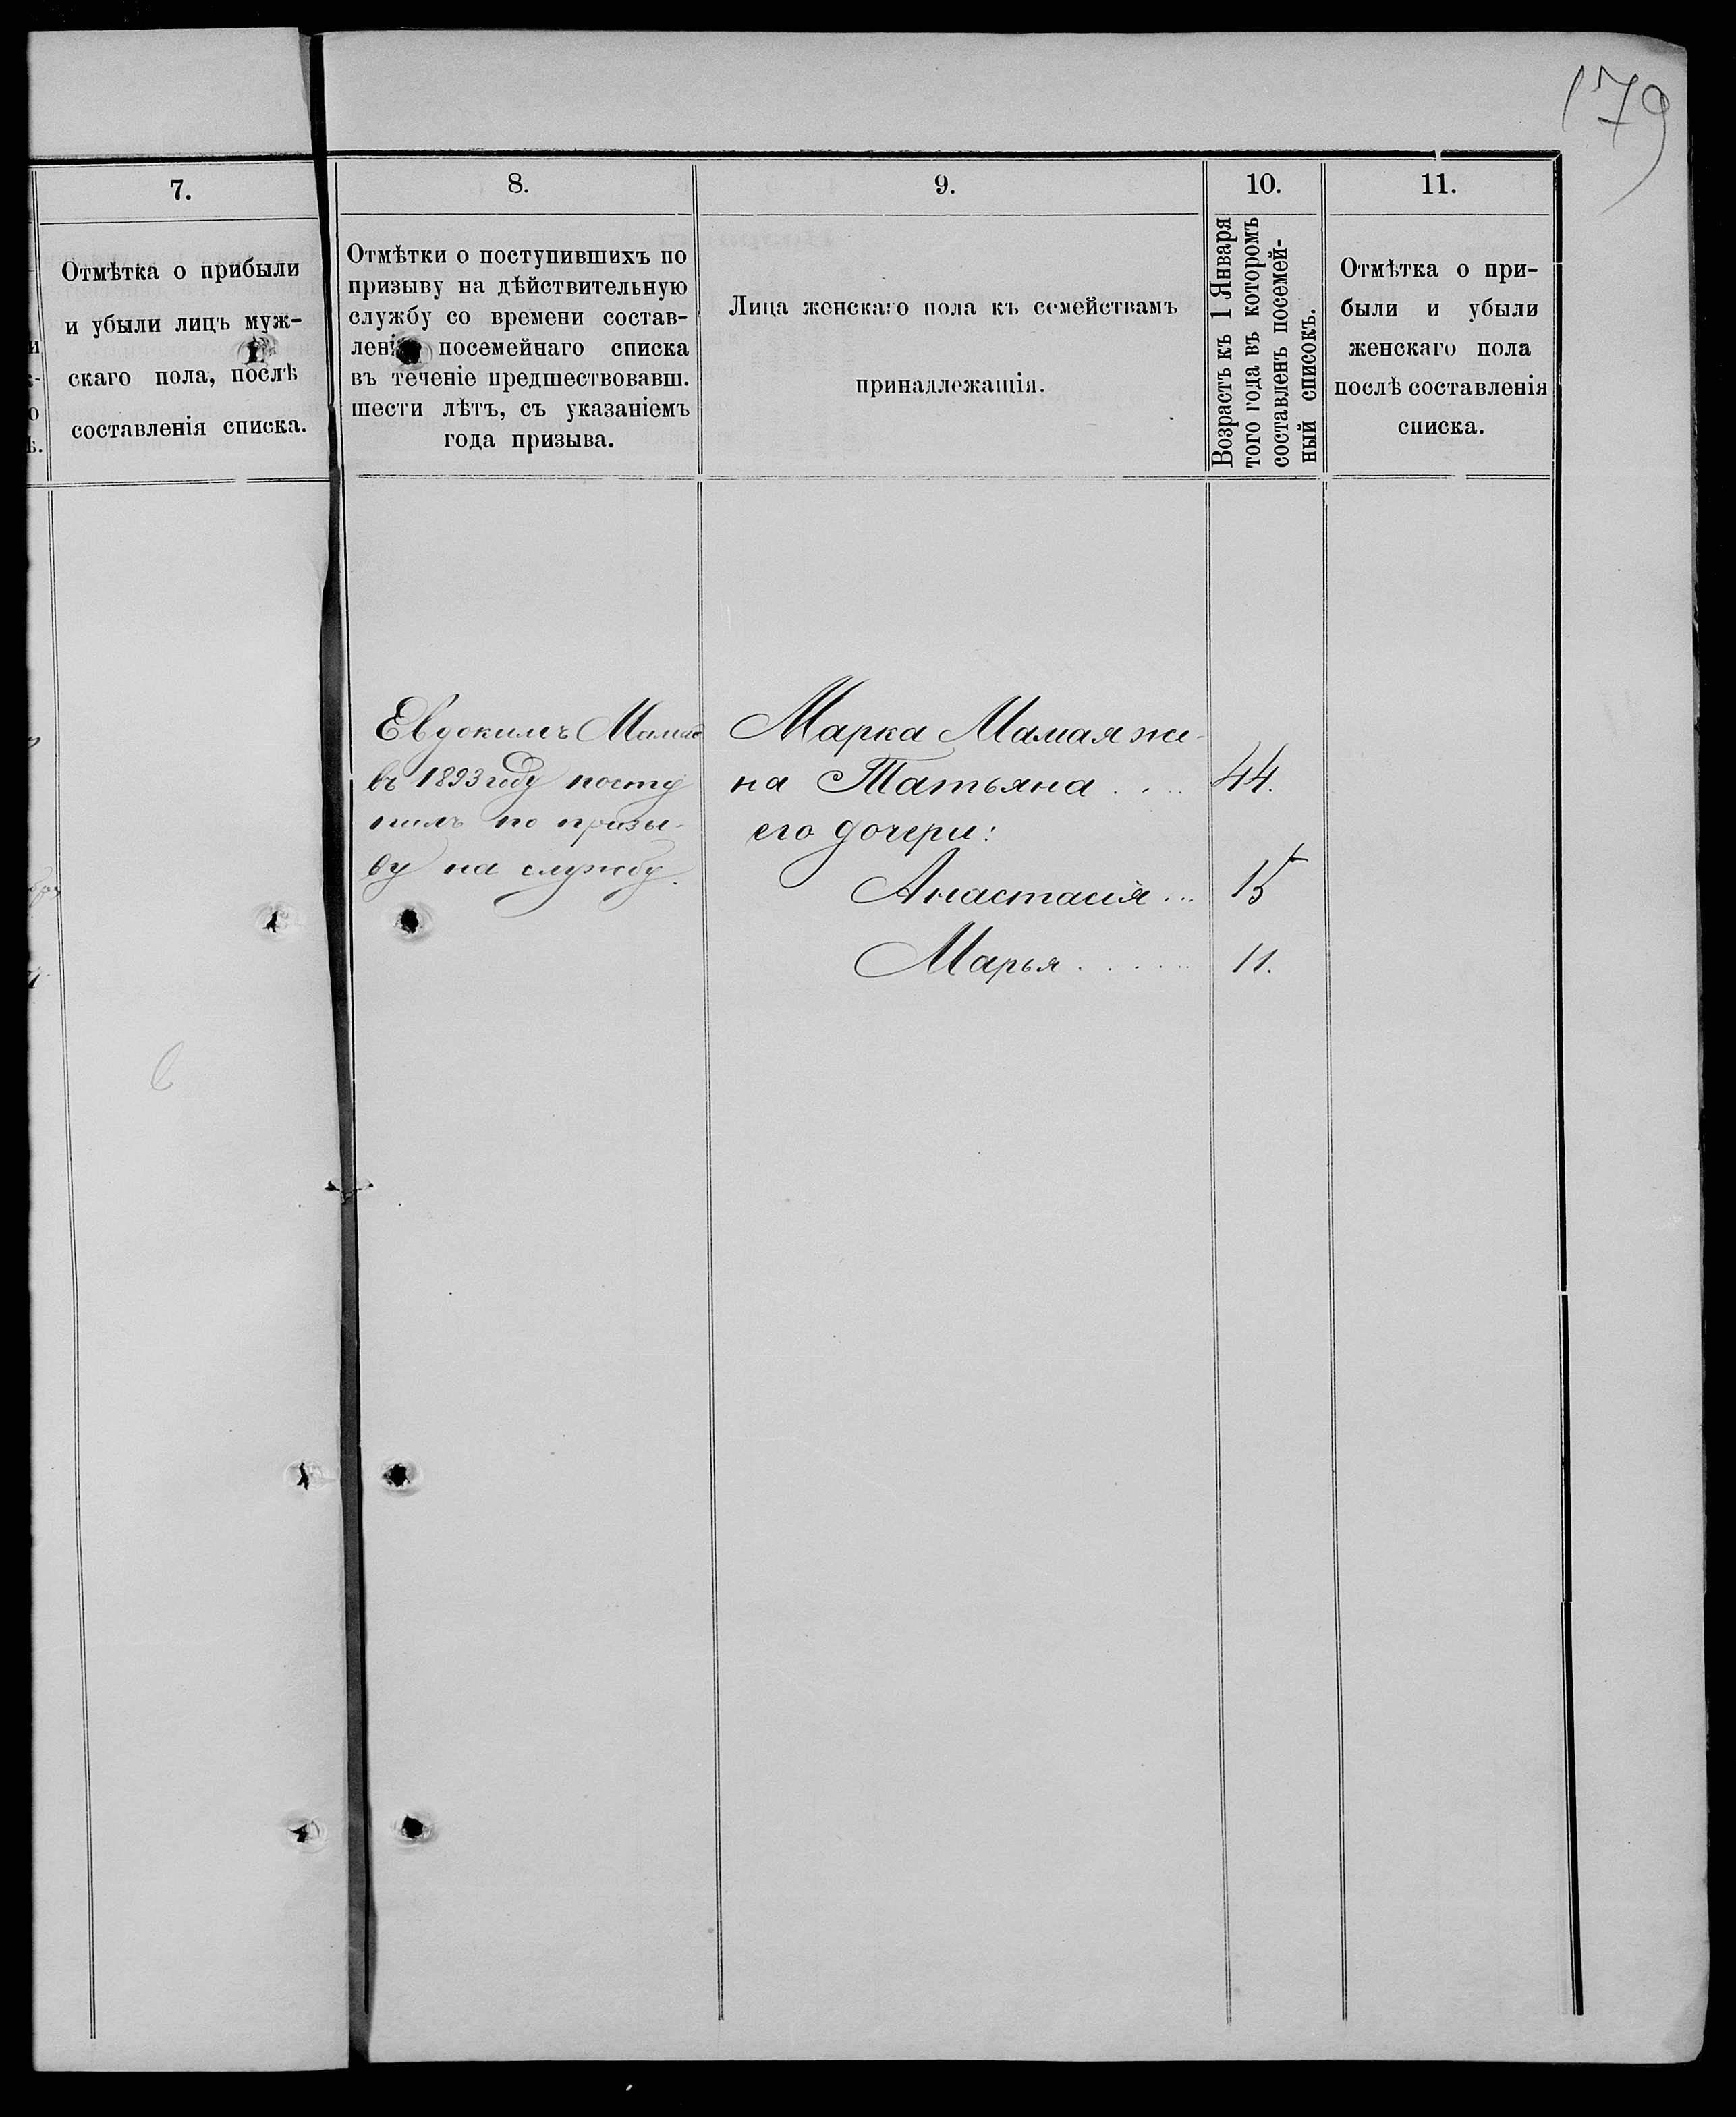 179
7.
Отмѣтка о прибыли
и убыли лицъ муж-
скаго пола, послѣ
составленія списка.
8.
Отмѣтки о поступившихъ по
призыву на дѣйствительную
службу со времени состав-
лені посемейнаго списка
въ теченіе предшествовавш.
шести лѣтъ, съ указаніемъ
года призыва.
9.
Лица женскаго пола къ семействамъ
принадлежащія.
10.
Возрастъ къ 1 Января
того года въ которомъ
составленъ посемей-
ный списокъ.
11.
Отмѣтка о при-
были и убыли
женскаго пола
послѣ составленія
списка.
Евдокимъ Мамай
въ 1893 году посту
пилъ по призы-
ву на службу.
Марка Мамая же-
на Татьяна . . . 44.
его дочери:
Анастасія ... 15
Марья . . . . . . 11.